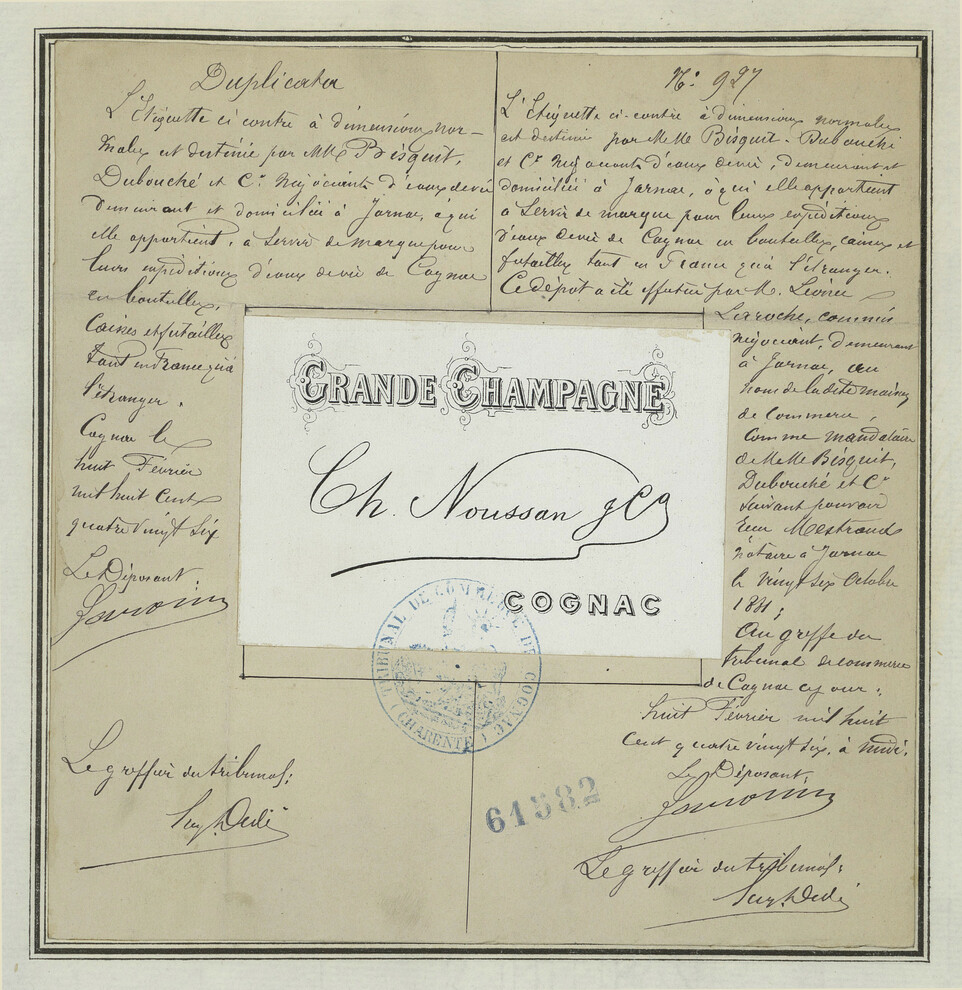 Duplicata
L'Etiquette ci contre à dimensions nor-
males est destinée par MM. Bisquit,
Dubouché et Cie Négociants d'eaux de vie
demeurant et domiciliés à Jarnac, à qui
elle appartient, à servir de marque pour
leurs expéditions d'eaux de vie de Cognac
en bouteilles,
Caisses et futailles
tant en France qu'à
l'étranger.
Cognac le
huit Février
mil huit cent
quatre vingt six
Le Déposant
Le greffier du tribunal:
No. 927
L'Etiquette ci-contre à dimensions normales
est destinée par MM. Bisquit-Dubouché
et Cie Négociants d'eaux de vie, demeurant et
domiciliés à Jarnac, à qui elle appartient
à servir de marque pour leurs expéditions
d'eaux de vie de Cognac en bouteilles, caisses et
futailles tant en France qu'à l'étranger.
Ce dépôt a été effectué par M.
Laroche, commis
négociant, demeurant
à Jarnac, au
nom de la dite maison
de Commerce,
comme mandataire
de MM. Bisquit,
Dubouché et Cie
suivant pouvoir
Mestraud
notaire à Jarnac
le vingt six Octobre
Au greffe du
tribunal de commerce
de Cognac ce jour:
huit Février mil huit
cent quatre vingt six, à midi.
Le Déposant
Le greffier du tribunal:
GRANDE CHAMPAGNE
Ch. Noussan & Co
COGNAC
TRIBUNAL DE COMMERCE DE COGNAC
(CHARENTE)
61582